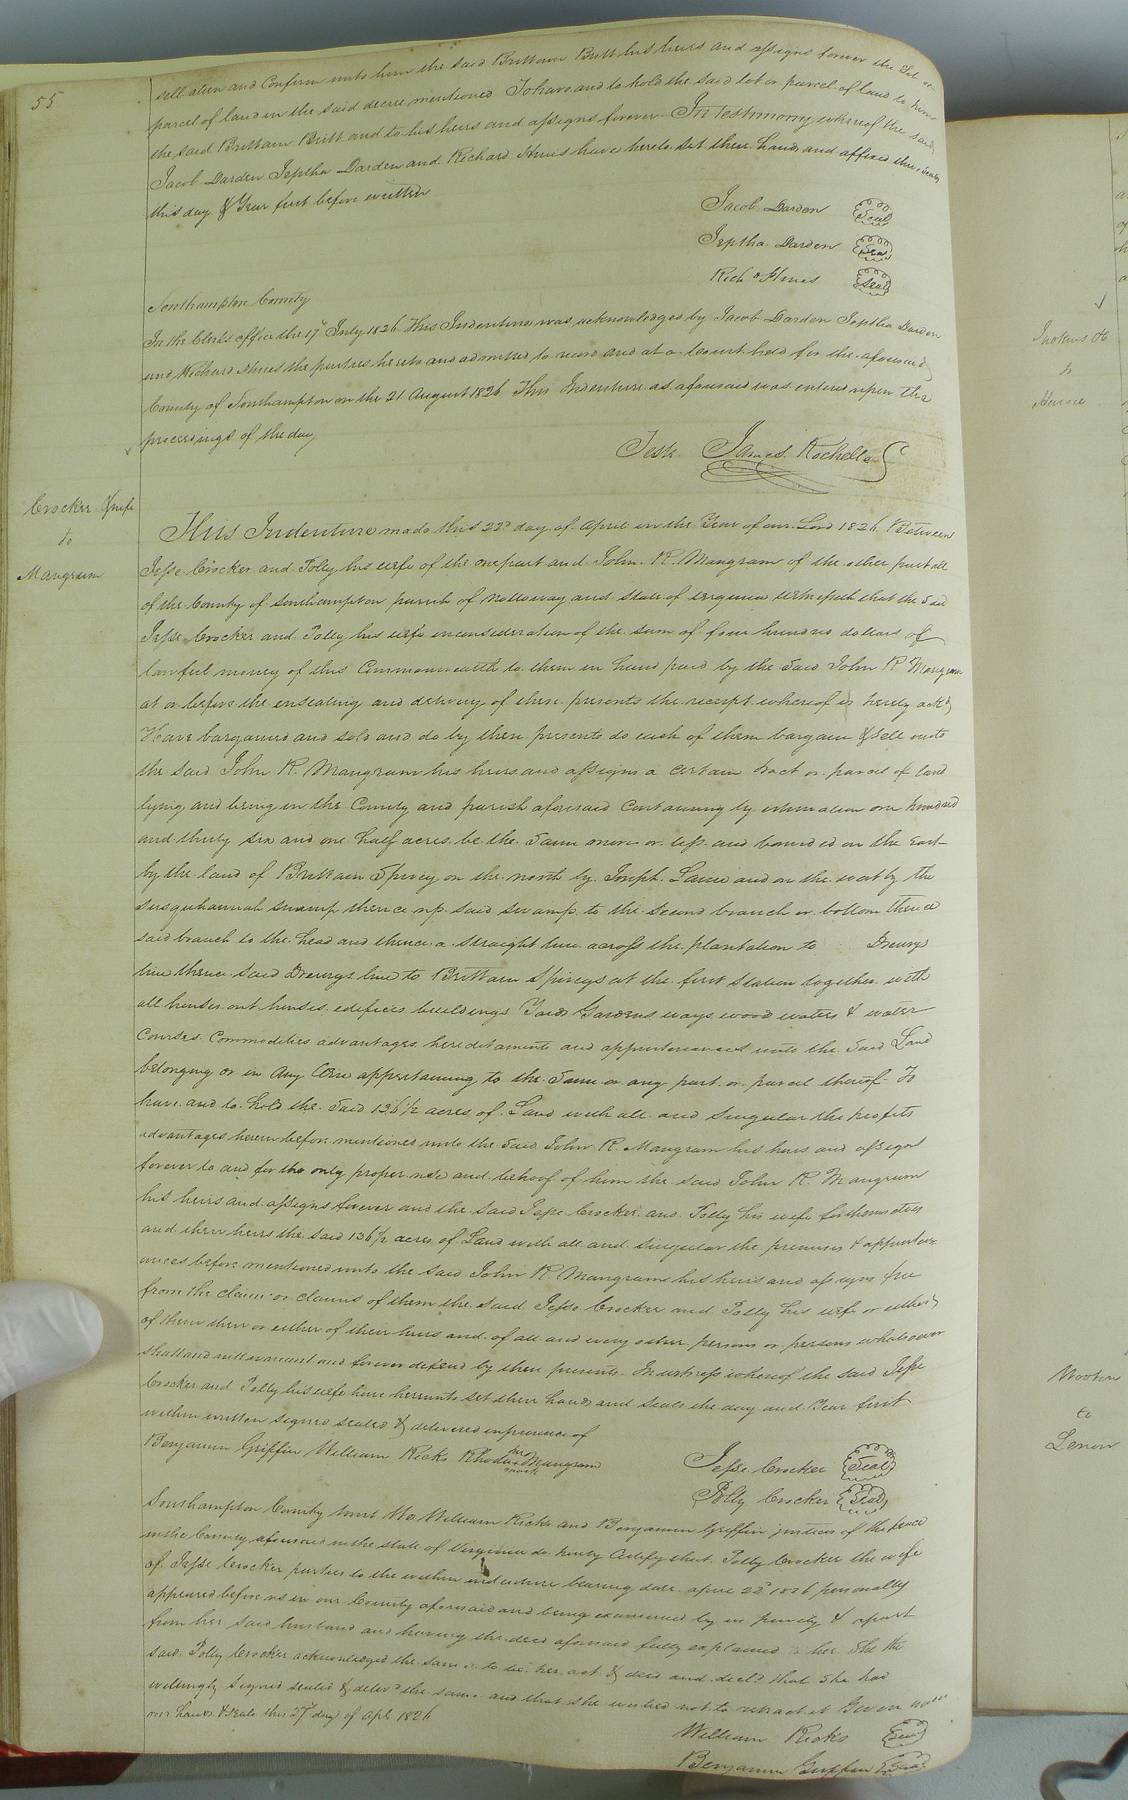 55
sell alien and Confirm unto him the said Brittain Britt his heirs and assigns forever the
parcel of land in the said decree mentioned To have and to hold the said lot or parcel of land to him
the said Brittain Britt and to his heirs and assigns forever In Testimony whereof the said
Jacob Darden Jeptha Darden and Richard Hines have hereto set their hands and affixed their seals
this day & Year first before written
Jacob Darden Seal
Jeptha Darden Seal
Richd Hines Seal
Southampton County
In the Clerks office the 17th July 1826 This Indenture was acknowledged by Jacob Darden Jeptha Darden
and Richard Hines the parties hereto and admitted to record and at a Court held for the aforesaid
County of Southampton on the 21 August 1826 This Indenture as aforesaid was entered upon the
proceedings of the day
Teste James Rochelle
Crocker & wife
to
Mangram
This Indenture made this 22d day of April in the Year of our Lord 1826 Between
Jesse Crocker and Polly his wife of the one part and John R. Mangram of the other part all
of the County of Southampton parish of Nottoway and State of virginia witnesseth that the Said
Jesse Crocker and Polly his wife in consideration of the sum of four hundred dollars of
lawful money of this Commonwealth to them in hand paid by the Said John R Mangram
at or before the ensealing and delivery of these presents the receipt whereof is hereby ackd
Have bargained and sold and do by these presents do each of them bargain & Sell unto
the said John R. Mangram his heirs and assigns a certain tract or parcel of land
lying and being in the County and parish aforesaid Containing by estimation one hundred
and thirty six and one half acres be the Same more or less and bounded on the East
by the land of Brittain Spivey on the north by Joseph Lane and on the west by the
Susquehannah swamp thence up said swamp to the second branch or bottom thence
said branch to the head and thence a straight line across the plantation to Drewrys
line thence said Drewrys line to Brittain Spiveys at the first station together with
all houses out houses edifices buildings Yards Gardens ways wood waters & water
Courses Commodities advantages hereditaments and appurtenances unto the Said Land
belonging or in Any Wise appertaining to the Same or any part or parcel thereof To
have and to hold the Said 136 1/2 acres of Land with all and singular the profits
advantages herein before mentioned unto the Said John R. Mangram his heirs and assigns
forever to and for the only proper use and behoof of him the said John R. Mangram
his heirs and assigns forever and the Said Jesse Crocker and Polly his wife for themselves
and their heirs the said 136 1/2 acres of Land with all and singular the premises & appurten
ances before mentioned unto the said John R. Mangram his heirs and assigns free
from the claim or claims of them the said Jesse Crocker and Polly his wife or either
of them their or either of their heirs and of all and every other person or persons whatsoever
shall and will warrant and forever defend by these presents In witness whereof the said Jesse
Crocker and Polly his wife have hereunto set their hands and seals the day and Year first
within written signed sealed & delivered in presence of
Benjamin Griffin William Ricks Rhoda her mark Mangram
Jesse Crocker Seal
Polly Crocker Seal
Southampton County to wit We William Ricks and Benjamin Griffin justices of the peace
in the County aforesaid in the state of Virginia do hereby Certify that Polly Crocker the wife
of Jesse Crocker parties to the within indenture bearing date april 22d 1826 personally
appeared before us in our County aforesaid and being examined by us privily & apart
from her said husband and having the deed aforesaid fully explained to her She the
said Polly Crocker acknowledged the same to be her act & deed and decld that She had
willingly signed sealed & delivd the same and that she wished not to retract it Given under
our hands & seals this 27 day of Apl 1826
William Ricks Seal
Benjamin Griffin Seal
to
Wooten
to